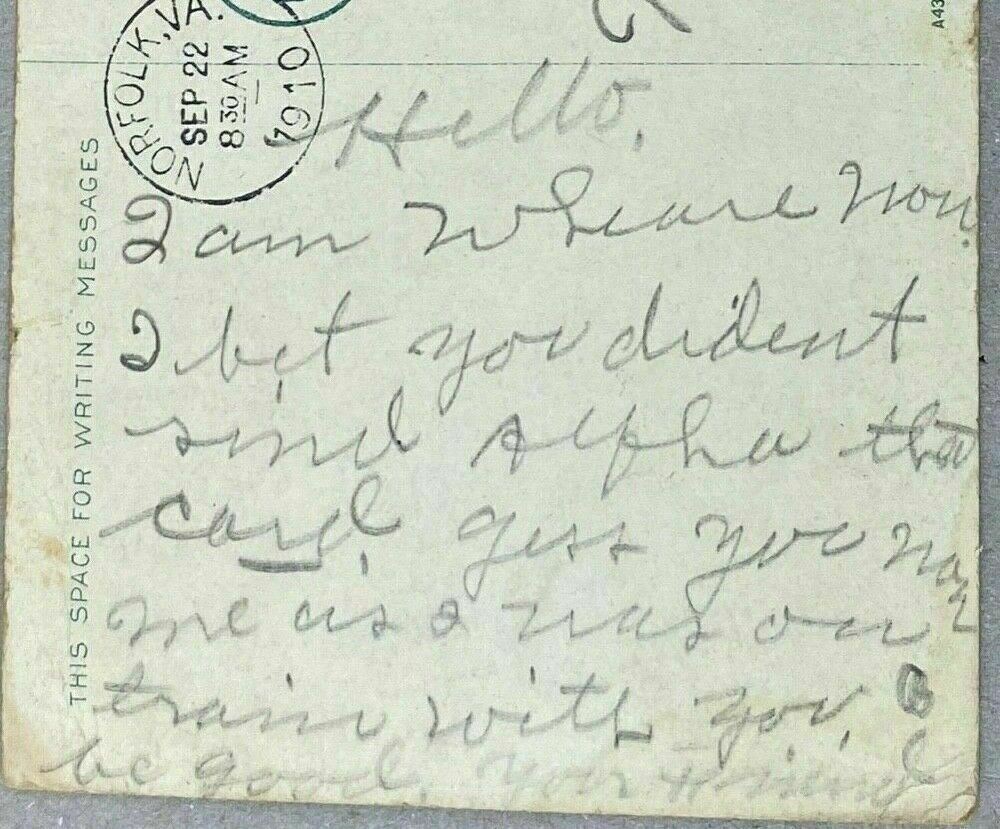 NORFOLK, VA.
SEP 22
8 30 AM
1910
A43
THIS SPACE FOR WRITING MESSAGES
Hello.
I am wheare now.
I bet you dident
send Alpha that
card. gess you now
me as I was on
train with you.
be good. your